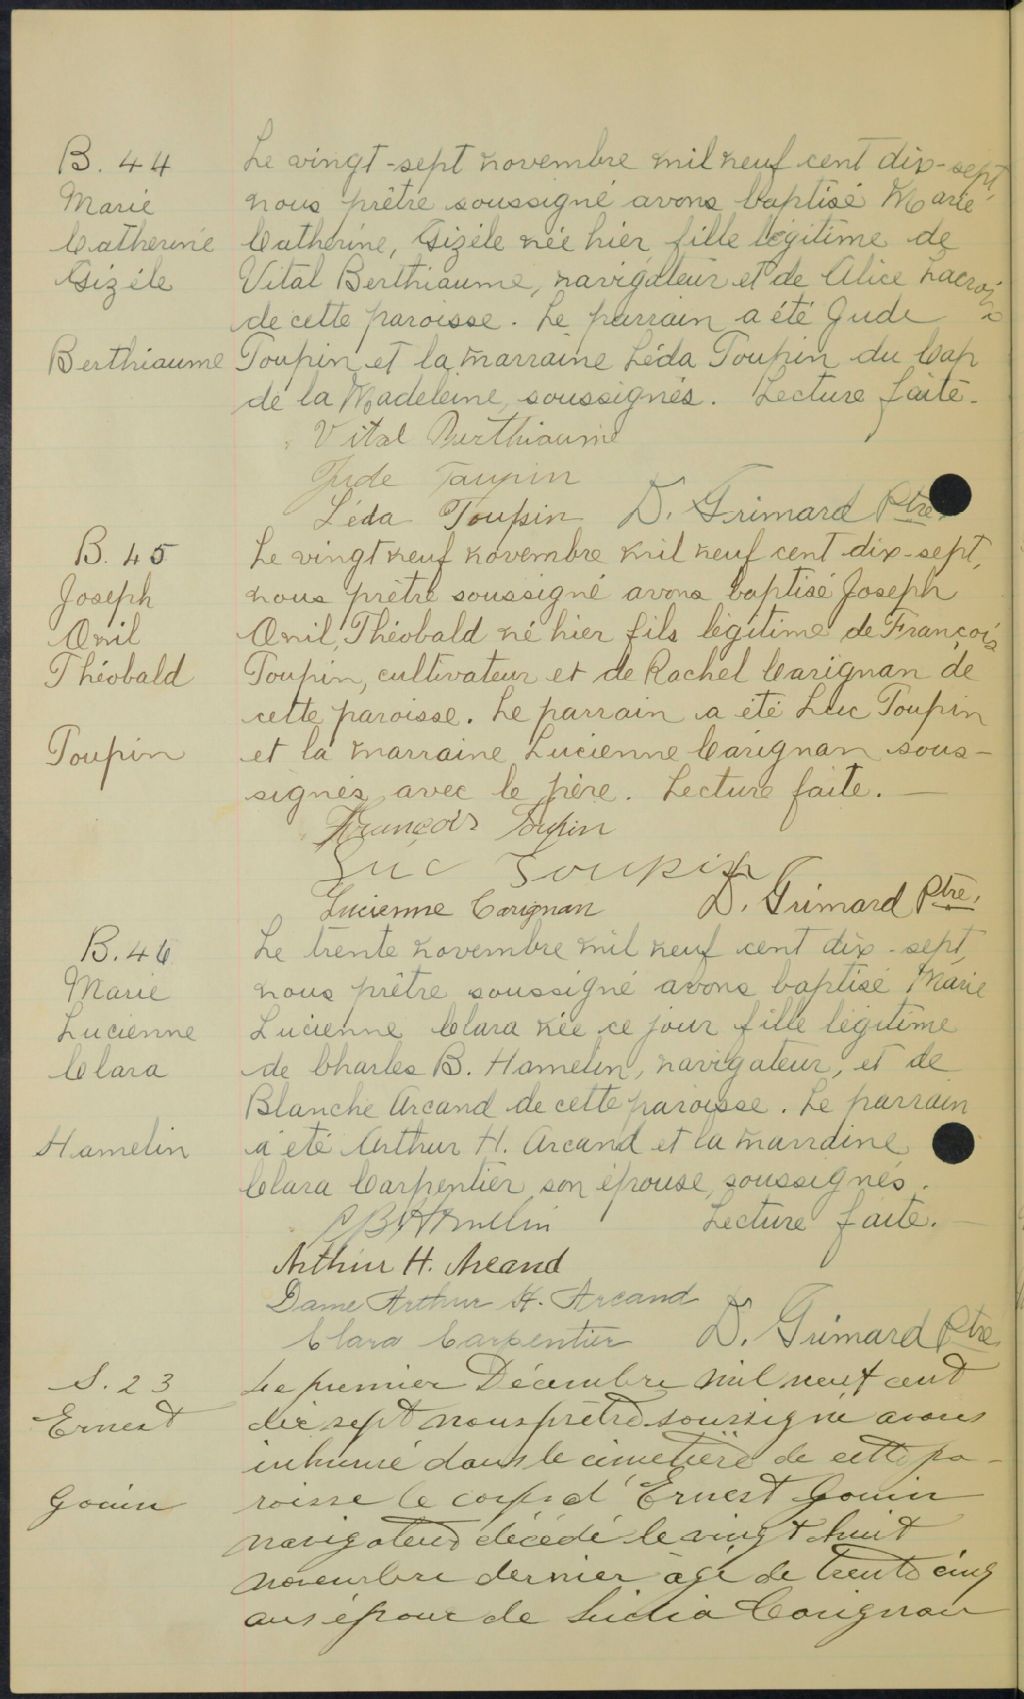 B. 44
Marie
Catherine
Gizèle
Berthiaume
Le vingt-sept novembre mil neuf cent dix-sept,
nous prêtre soussigné avons baptisé Marie
Catherine, Gizèle née hier fille légitime de
Vital Berthiaume, navigateur et de Alice Lacroix
de cette paroisse. Le parrain a été Jude
Toupin et la marraine Léda Toupin du Cap
de la Madeleine, soussignés. Lecture faite.
Vital Berthiaume
Jude Toupin
Léda Toupin D. Grimard Ptre.
B. 45
Joseph
Onil
Théobald
Toupin
Le vingt neuf novembre mil neuf cent dix-sept,
nous prêtre soussigné avons baptisé Joseph
Onil, Théobald né hier fils légitime de François
Toupin, cultivateur et de Rachel Carignan de
cette paroisse. Le parrain a été Luc Toupin
et la marraine Lucienne Carignan sous-
signés avec le père. Lecture faite. —
François Toupin
Luc Toupin
Lucienne Carignan D. Grimard Ptre.
B. 46
Marie
Lucienne
Clara
Hamelin
Le trente novembre mil neuf cent dix-sept,
nous prêtre soussigné avons baptisé Marie
Lucienne Clara née ce jour fille légitime
de Charles B. Hamelin, navigateur, et de
Blanche Arcand de cette paroisse. Le parrain
a été Arthur H. Arcand et la marraine
Clara Carpentier son épouse, soussignés.
Lecture faite. —
C B Hamelin
Arthur H. Arcand
Dame Arthur H. Arcand
Clara Carpentier D. Grimard Ptre
S. 23
Ernest
Gouin
Le premier Décembre mil neuf cent
dix sept nous prêtre soussigné avons
inhumé dans le cimetière de cette pa-
roisse le corps d'Ernest Gouin
navigateur décédé le vingt huit
novembre dernier âgé de trente cinq
ans époux de Lidia Carignan